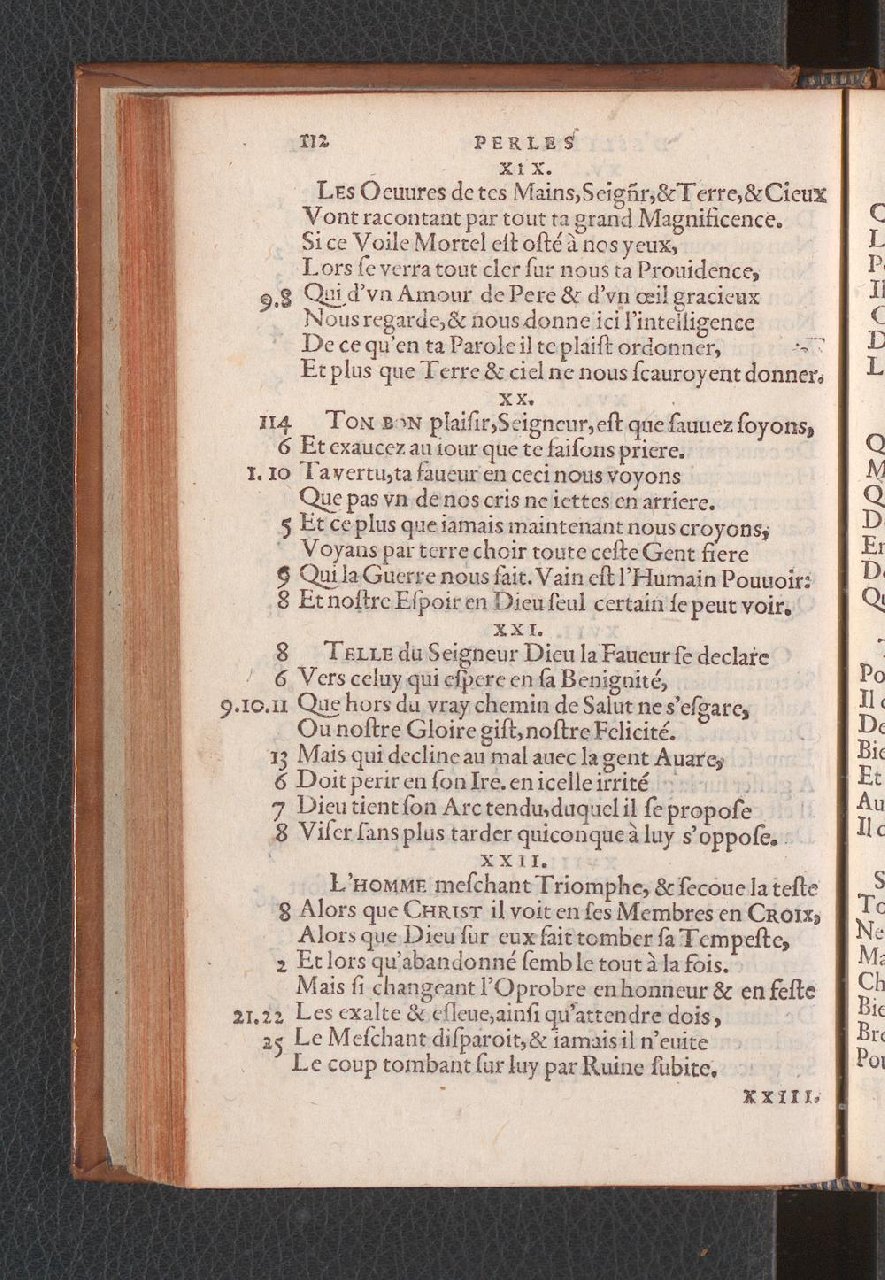 112 PERLES
XIX.
LES Oeuures de tes Mains, Seigñr, & Terre, & Cieux
Vont racontant par tout ta grand Magnificence.
Si ce Voile Mortel eſt oſté à nos yeux,
Lors ſe verra tout cler ſur nous ta Prouidence,
9.8 Qui d'vn Amour de Pere & d'vn œil gracieux
Nous regarde, & nous donne ici l'intelligence
De ce qu'en ta Parole il te plaiſt ordonner,
Et plus que Terre & ciel ne nous ſcauroyent donner.
XX.
114 TON BON plaiſir, Seigneur, eſt que ſauuez ſoyons,
6 Et exaucez au iour que te faiſons priere.
1. 10 Ta vertu, ta faueur en ceci nous voyons
Que pas vn de nos cris ne iettes en arriere.
5 Et ce plus que iamais maintenant nous croyons,
Voyans par terre choir toute ceſte Gent fiere
6 Qui la Guerre nous fait. Vain eſt l'Humain Pouuoir:
8 Et noſtre Eſpoir en Dieu ſeul certain ſe peut voir.
XXI.
8 TELLE du Seigneur Dieu la Faueur ſe declare
6 Vers celuy qui eſpere en ſa Benignité,
9.10.11 Que hors du vray chemin de Salut ne s'eſgare,
Ou noſtre Gloire giſt, noſtre Felicité.
13 Mais qui decline au mal auec la gent Auare,
6 Doit perir en ſon Ire. en icelle irrité
7 Dieu tient ſon Arc tendu, duquel il ſe propoſe
8 Viſer ſans plus tarder quiconque à luy s'oppoſe.
XXII.
L'HOMME meſchant Triomphe, & ſecoue la teſte
8 Alors que CHRIST il voit en ſes Membres en CROIX,
Alors que Dieu ſur eux fait tomber ſa Tempeſte,
2 Et lors qu'abandonné ſemble tout à la fois.
Mais ſi changeant l'Oprobre en honneur & en feſte
21.22 Les exalte & eſleue, ainſi qu'attendre dois,
25 Le Meſchant diſparoit, & iamais il n'euite
Le coup tombant ſur luy par Ruine ſubite.
XXIII.